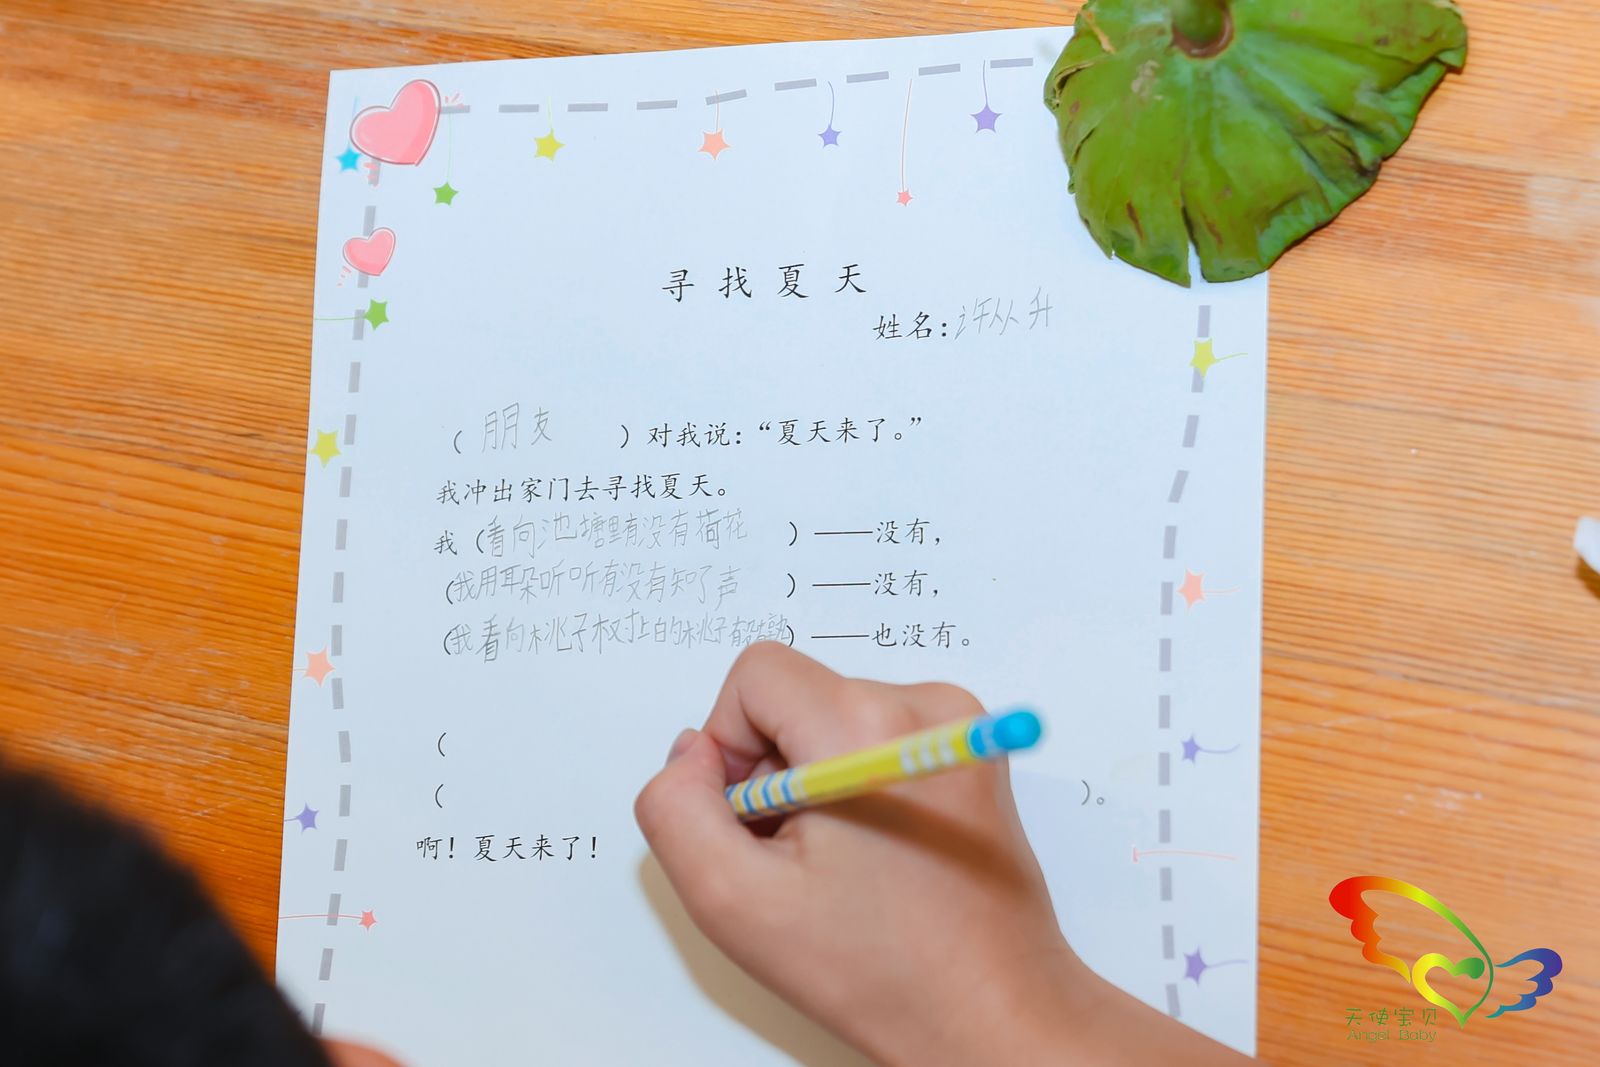 寻找夏天
姓名：许从升
（朋友）对我说：“夏天来了。”
我冲出家门去寻找夏天。
我（看向池塘里有没有荷花）——没有，
（我用耳朵听听有没有知了声）——没有，
（我看向桃子树上的桃子有没有熟）——也没有。
（
（ ）。
啊！夏天来了！
天使宝贝
Angel Baby